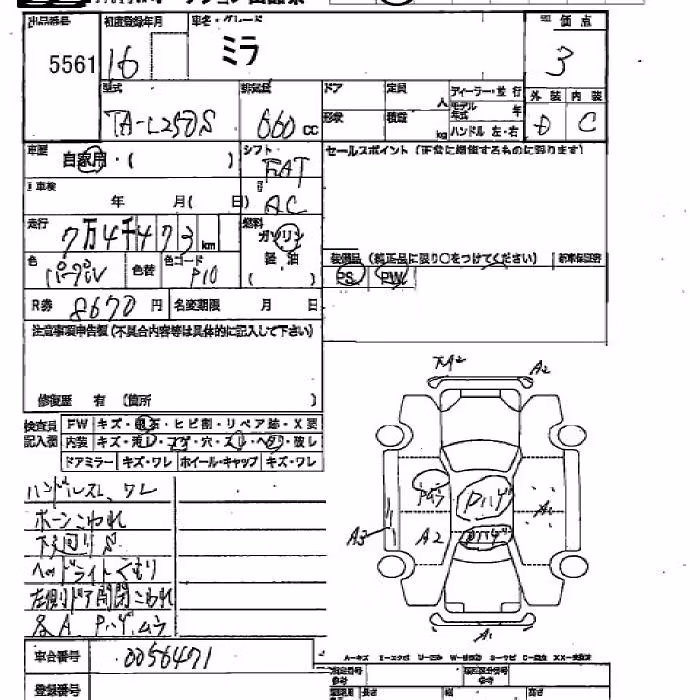 出品番号 初度登録年月 車名・グレード 評価点
5561 16 ミラ 3
型式 排気量 ドア 定員 ディーラー・並行
人 モデル年式 年
外装 内装
TA-L250S 660cc 形状 積載 kg ハンドル 左・右 D C
車歴 自家用・( ) シフト FAT セールスポイント(正常に機能するものに限ります)
車検 年 月( 日) AC
走行 7万4千473km 燃料 ガソリン
軽油
( )
色 パープルV 色替 色コード P10 装備品(純正品に限り○をつけてください) 新車保証書
PS PW
R券 8670円 名変期限 月 日
注意事項申告欄(不具合内容等は具体的に記入して下さい)
修復歴 有 (箇所 )
検査員記入欄 FW キズ・飛石・ヒビ割・リペア跡・X要
内装 キズ・汚レ・コゲ・穴・スレ・ヘタリ・破レ
ドアミラー キズ・ワレ ホイール・キャップ キズ・ワレ
ハンドルスレ、ワレ
ホーンこわれ
下廻りS
ヘッドライトくもり
左側ドア開閉こわれ
&A Pハゲ、ムラ
A2 A2
Pムラ Pハゲ A1
A3 A2 Pハゲ
A1
A-キズ
車台番号 0056471
登録番号
長さ 幅 高さ